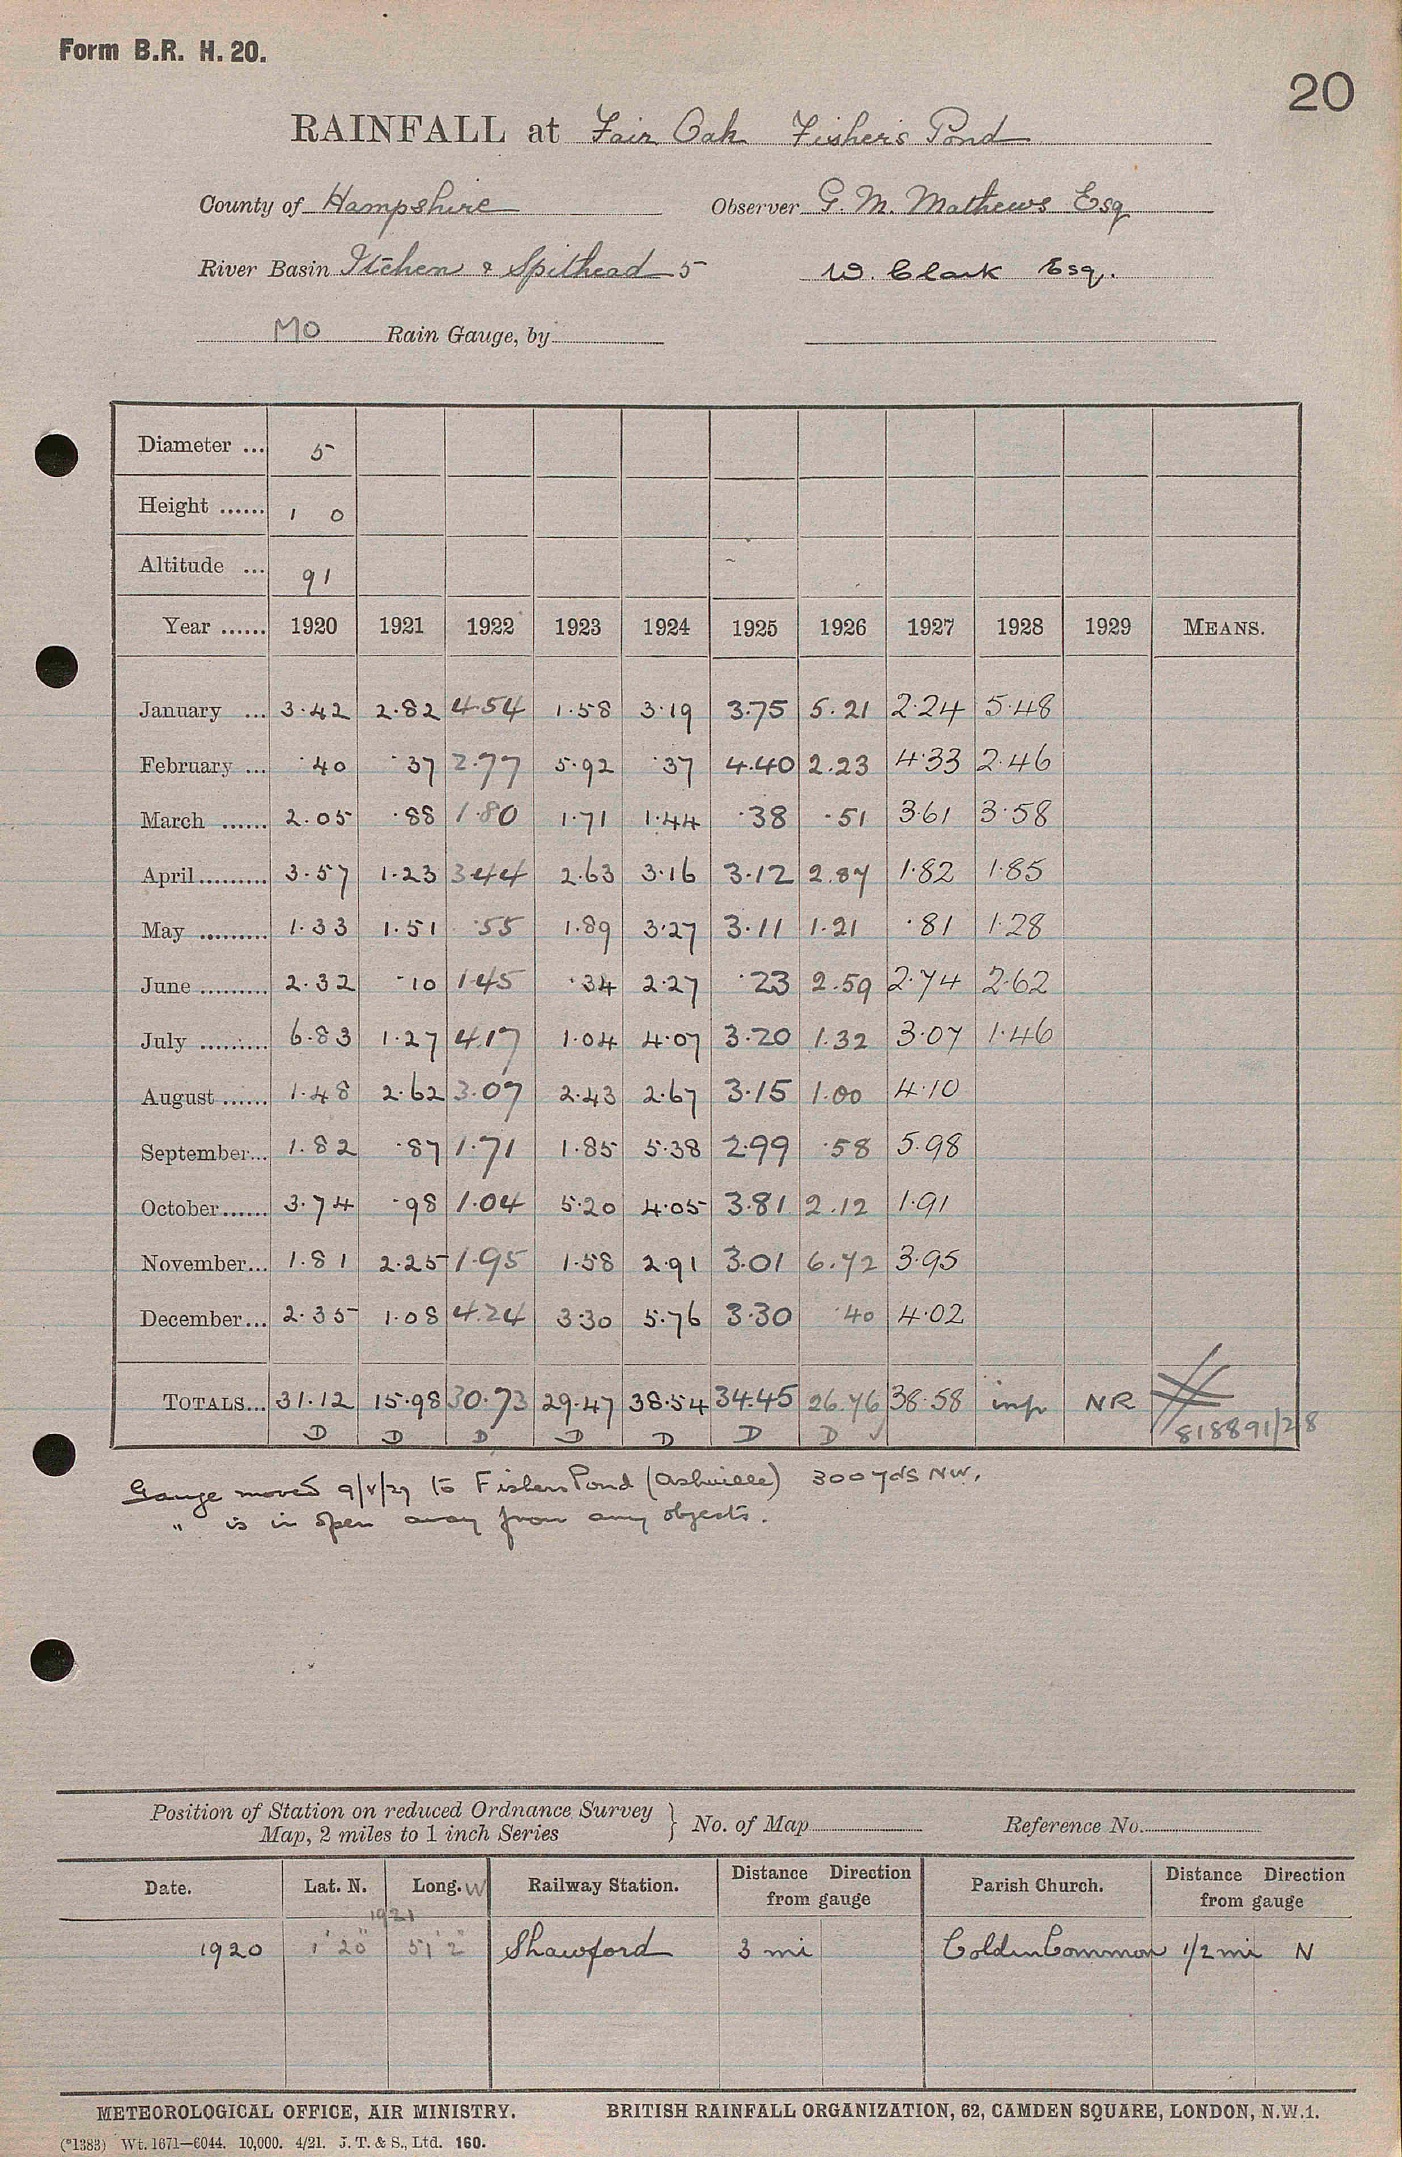 Form B.R. H. 20.
20
RAINFALL at Fair Oak Fishers Pond
County of Hampshire Observer G. M. Mathews Esq
River Basin Itchen & Spithead 5 W. Clark Esq.
MO Rain Gauge, by
Diameter ... 5
Height ...... 1 0
Altitude ... 91
Year ...... 1920 1921 1922 1923 1924 1925 1926 1927 1928 1929 MEANS.
January ... 3.42 2.82 4.54 1.58 3.19 3.75 5.21 2.24 5.48
February ... .40 .37 2.77 5.92 .37 4.40 2.23 4.33 2.46
March ...... 2.05 .88 1.80 1.71 1.44 .38 .51 3.61 3.58
April ......... 3.57 1.23 3.44 2.63 3.16 3.12 2.87 1.82 1.85
May ......... 1.33 1.51 .55 1.89 3.27 3.11 1.21 .81 1.28
June ......... 2.32 .10 1.45 .34 2.27 .23 2.59 2.74 2.62
July ......... 6.83 1.27 4.17 1.04 4.07 3.20 1.32 3.07 1.46
August ...... 1.48 2.62 3.07 2.43 2.67 3.15 1.00 4.10
September... 1.82 .87 1.71 1.85 5.38 2.99 .58 5.98
October ...... 3.74 .98 1.04 5.20 4.05 3.81 2.12 1.91
November... 1.81 2.25 1.95 1.58 2.91 3.01 6.72 3.95
December... 2.35 1.08 4.24 3.30 5.76 3.30 .40 4.02
TOTALS... 31.12 15.98 30.73 29.47 38.54 34.45 26.76 38.58 inp NR
D D D D D D D ✓ 818891/28
Gauge moved 9/V/27 to Fishers Pond (Ashville) 300 yds NW.
" is in open away from any objects.
Position of Station on reduced Ordnance Survey Map, 2 miles to 1 inch Series } No. of Map Reference No.
Date. Lat. N. Long. W Railway Station. Distance Direction from gauge Parish Church. Distance Direction from gauge
1921
1920 1° 20' 51' 2" Shawford 3 mi Colden Common 1/2 mi N
METEOROLOGICAL OFFICE, AIR MINISTRY. BRITISH RAINFALL ORGANIZATION, 62, CAMDEN SQUARE, LONDON, N.W.1.
(*1383) Wt. 1671—6044. 10,000. 4/21. J. T. & S., Ltd. 160.